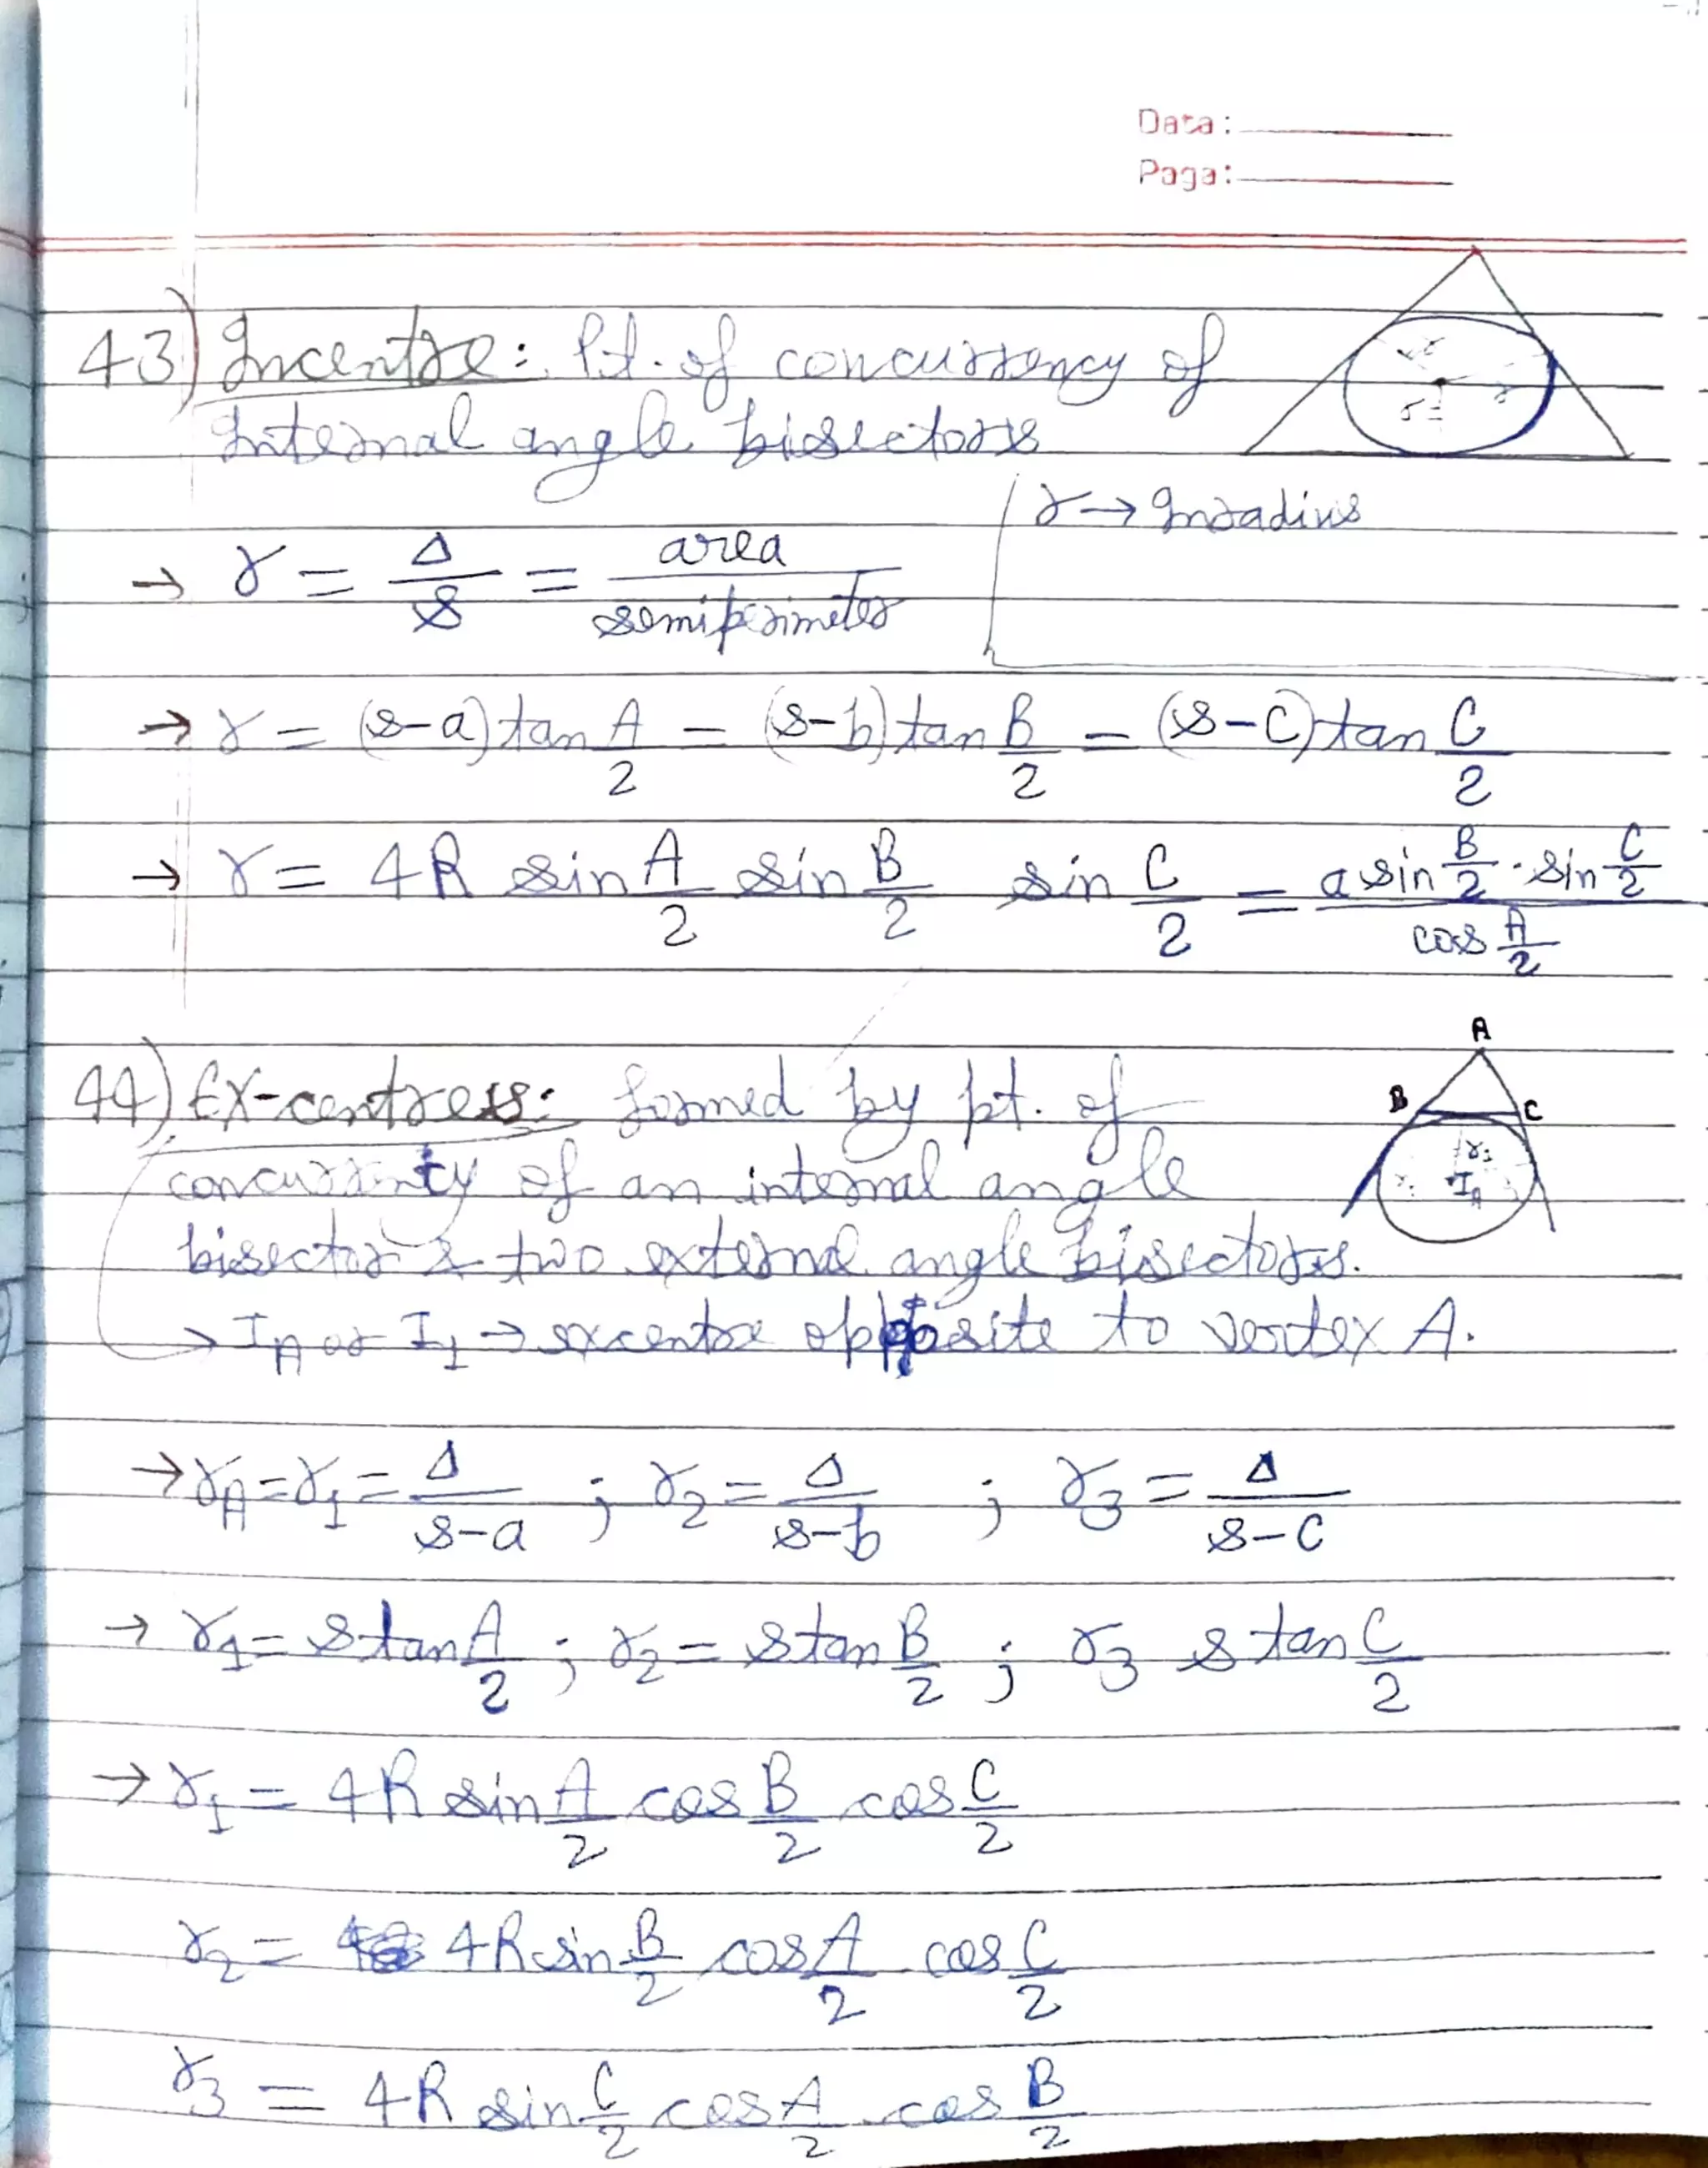 Date:
Page:
43) Incentre: Pt. of concurrency of
Internal angle bisectors
r → Inradius
→ r = Δ/s = area/semiperimeter
→ r = (s-a) tan A/2 = (s-b) tan B/2 = (s-c) tan C/2
→ r = 4R sin A/2 sin B/2 sin C/2 = a sin B/2 · sin C/2 / cos A/2
44) Ex-centress: formed by pt. of
concurrenty of an internal angle
bisector & two external angle bisectors.
→ I_A or I_1 → excentre opposite to vertex A.
A
B C
r_1
I_A
→ r_A = r_1 = Δ/s-a ; r_2 = Δ/s-b ; r_3 = Δ/s-c
→ r_1 = s tan A/2 ; r_2 = s tan B/2 ; r_3 s tan C/2
→ r_1 = 4R sin A/2 cos B/2 cos C/2
r_2 = 4R sin B/2 cos A/2 cos C/2
r_3 = 4R sin C/2 cos A/2 cos B/2